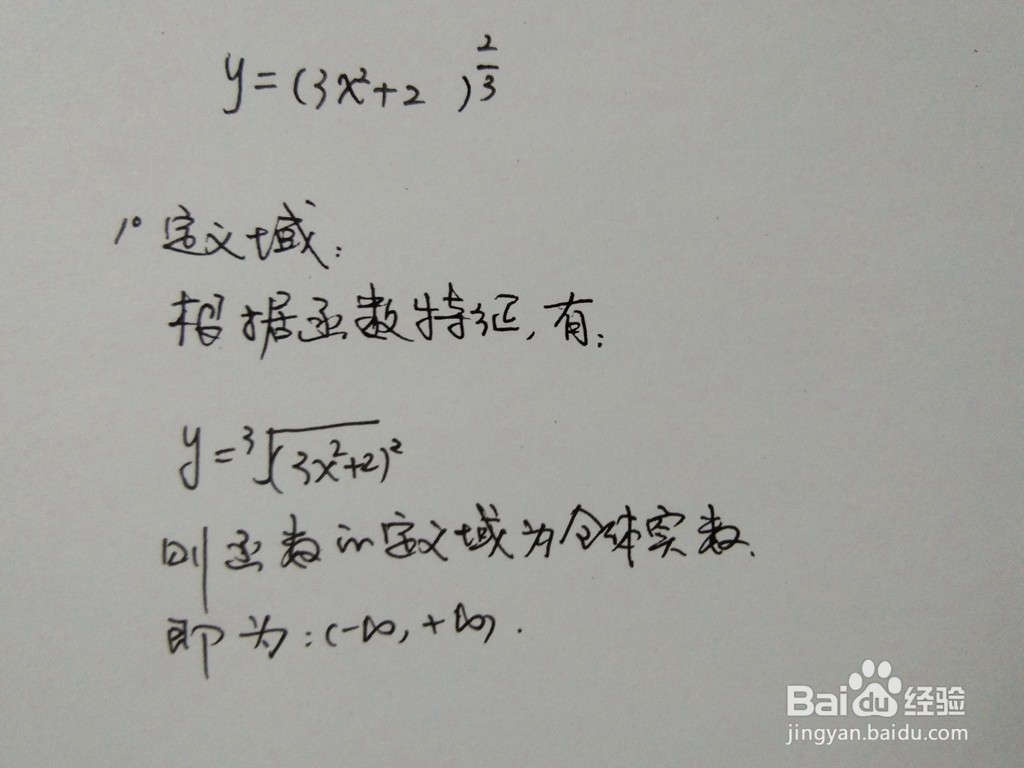 y=(3x²+2 )^(2/3)
1° 定义域：
根据函数特征，有：
y=³√(3x²+2)²
则函数的定义域为全体实数.
即为：(-∞, +∞).
Baidu经验
jingyan.baidu.com